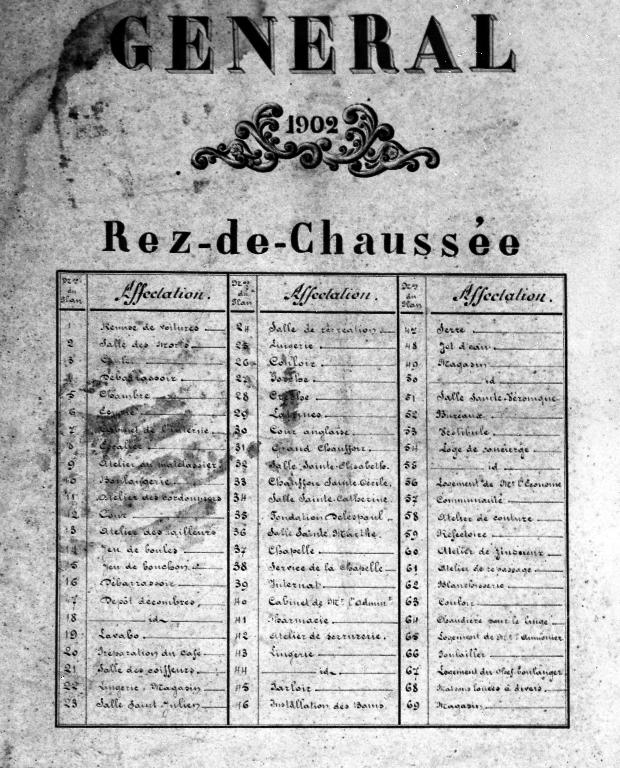 GENERAL
1902
Rez-de-Chaussée
Nos du Plan
Affectation.
1 Remise de voitures
2 Salle des Morts
3
4 Débarrassoir
5 Chambre
6
7 Cabinet de l'interne
8 Escalier
9 Atelier du matelassier
10 Boulangerie
11 Atelier des cordonniers
12 Cour
13 Atelier des tailleurs
14 Jeu de boules
15 Jeu de bouchon
16 Débarrassoir
17 Dépôt décombres
18 id
19 Lavabo
20 Préparation du Café
21 Salle des coiffeurs
22 Lingerie, Magasin
23 Salle Saint-Julien
Nos du Plan
Affectation.
24 Salle de récréation
25 Lingerie
26 Couloir
27
28 Crèche
29 Latrines
30 Cour anglaise
31 Grand Chauffoir
32 Salle Sainte-Elisabeth
33 Chauffoir Sainte Cécile
34 Salle Sainte-Catherine
35 Fondation Delespaul
36 Salle Sainte-Marthe
37 Chapelle
38 Service de la Chapelle
39 Internat
40 Cabinet de Mr l'Adminr
41 Pharmacie
42 Atelier de serrurerie
43 Lingerie
44 id
45 Parloir
46 Installation des Bains
Nos du Plan
Affectation.
47 Serre
48 Jet d'eau
49 Magasin
50 id
51 Salle Sainte-Véronique
52 Bureaux
53 Vestibule
54 Loge de concierge
55 id
56 Logement de Mr l'Econome
57 Communauté
58 Atelier de couture
59 Réfectoire
60 Atelier de
61 Atelier de repassage
62 Blanchisserie
63 Couloir
64 Chaudière pour le linge
65 Logement de Mr l'Aumônier
66 Poulailler
67 Logement du Chef boulanger
68 Maisons louées à divers
69 Magasin